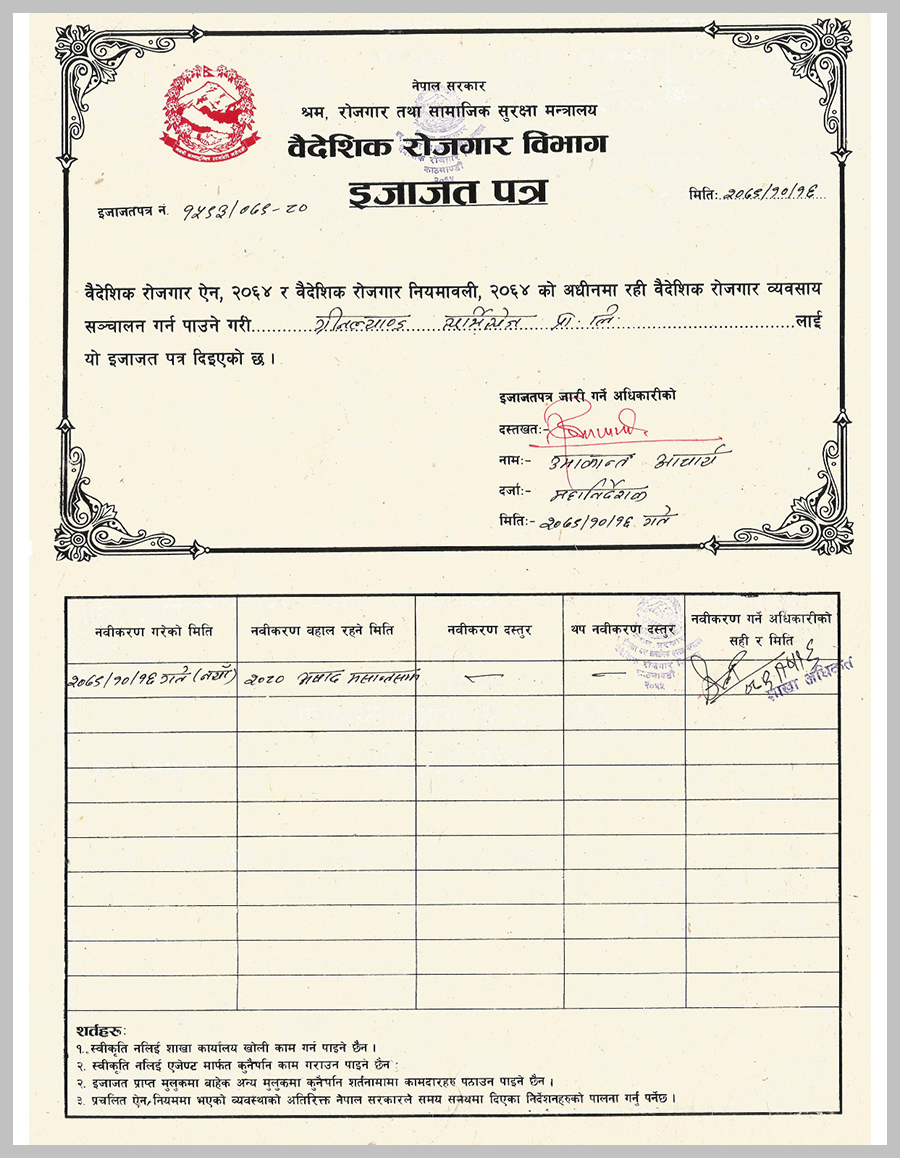 नेपाल सरकार
श्रम, रोजगार तथा सामाजिक सुरक्षा मन्त्रालय
वैदेशिक रोजगार विभाग
इजाजत पत्र
मितिः २०७९/१०/१६
इजाजतपत्र नं. १५९३/०७९-८०
वैदेशिक रोजगार ऐन, २०६४ र वैदेशिक रोजगार नियमावली, २०६४ को अधीनमा रही वैदेशिक रोजगार व्यवसाय
सञ्चालन गर्न पाउने गरी ग्रीनल्याण्ड सर्भिसेज प्रा. लि. लाई
यो इजाजत पत्र दिइएको छ ।
इजाजतपत्र जारी गर्ने अधिकारीको
दस्तखतः-
नामः- उमाकान्त आचार्य
दर्जाः- महानिर्देशक
मितिः- २०७९/१०/१६ गते
नवीकरण गरेको मिति नवीकरण वहाल रहने मिति नवीकरण दस्तुर थप नवीकरण दस्तुर नवीकरण गर्ने अधिकारीको
सही र मिति
२०७९/१०/१६ गते (नयाँ) २०८० अषाढ मसान्तसम्म — —
शाखा अधिकृत
शर्तहरुः
१. स्वीकृति नलिई शाखा कार्यालय खोली काम गर्न पाइने छैन ।
२. स्वीकृति नलिई एजेण्ट मार्फत कुनैपनि काम गराउन पाइने छैन
२. इजाजत प्राप्त मुलुकमा बाहेक अन्य मुलुकमा कुनैपनि शर्तनामामा कामदारहरु पठाउन पाइने छैन ।
३. प्रचलित ऐन, नियममा भएको व्यवस्थाको अतिरिक्त नेपाल सरकारले समय समयमा दिएका निर्देशनहरुको पालना गर्नु पर्नेछ ।